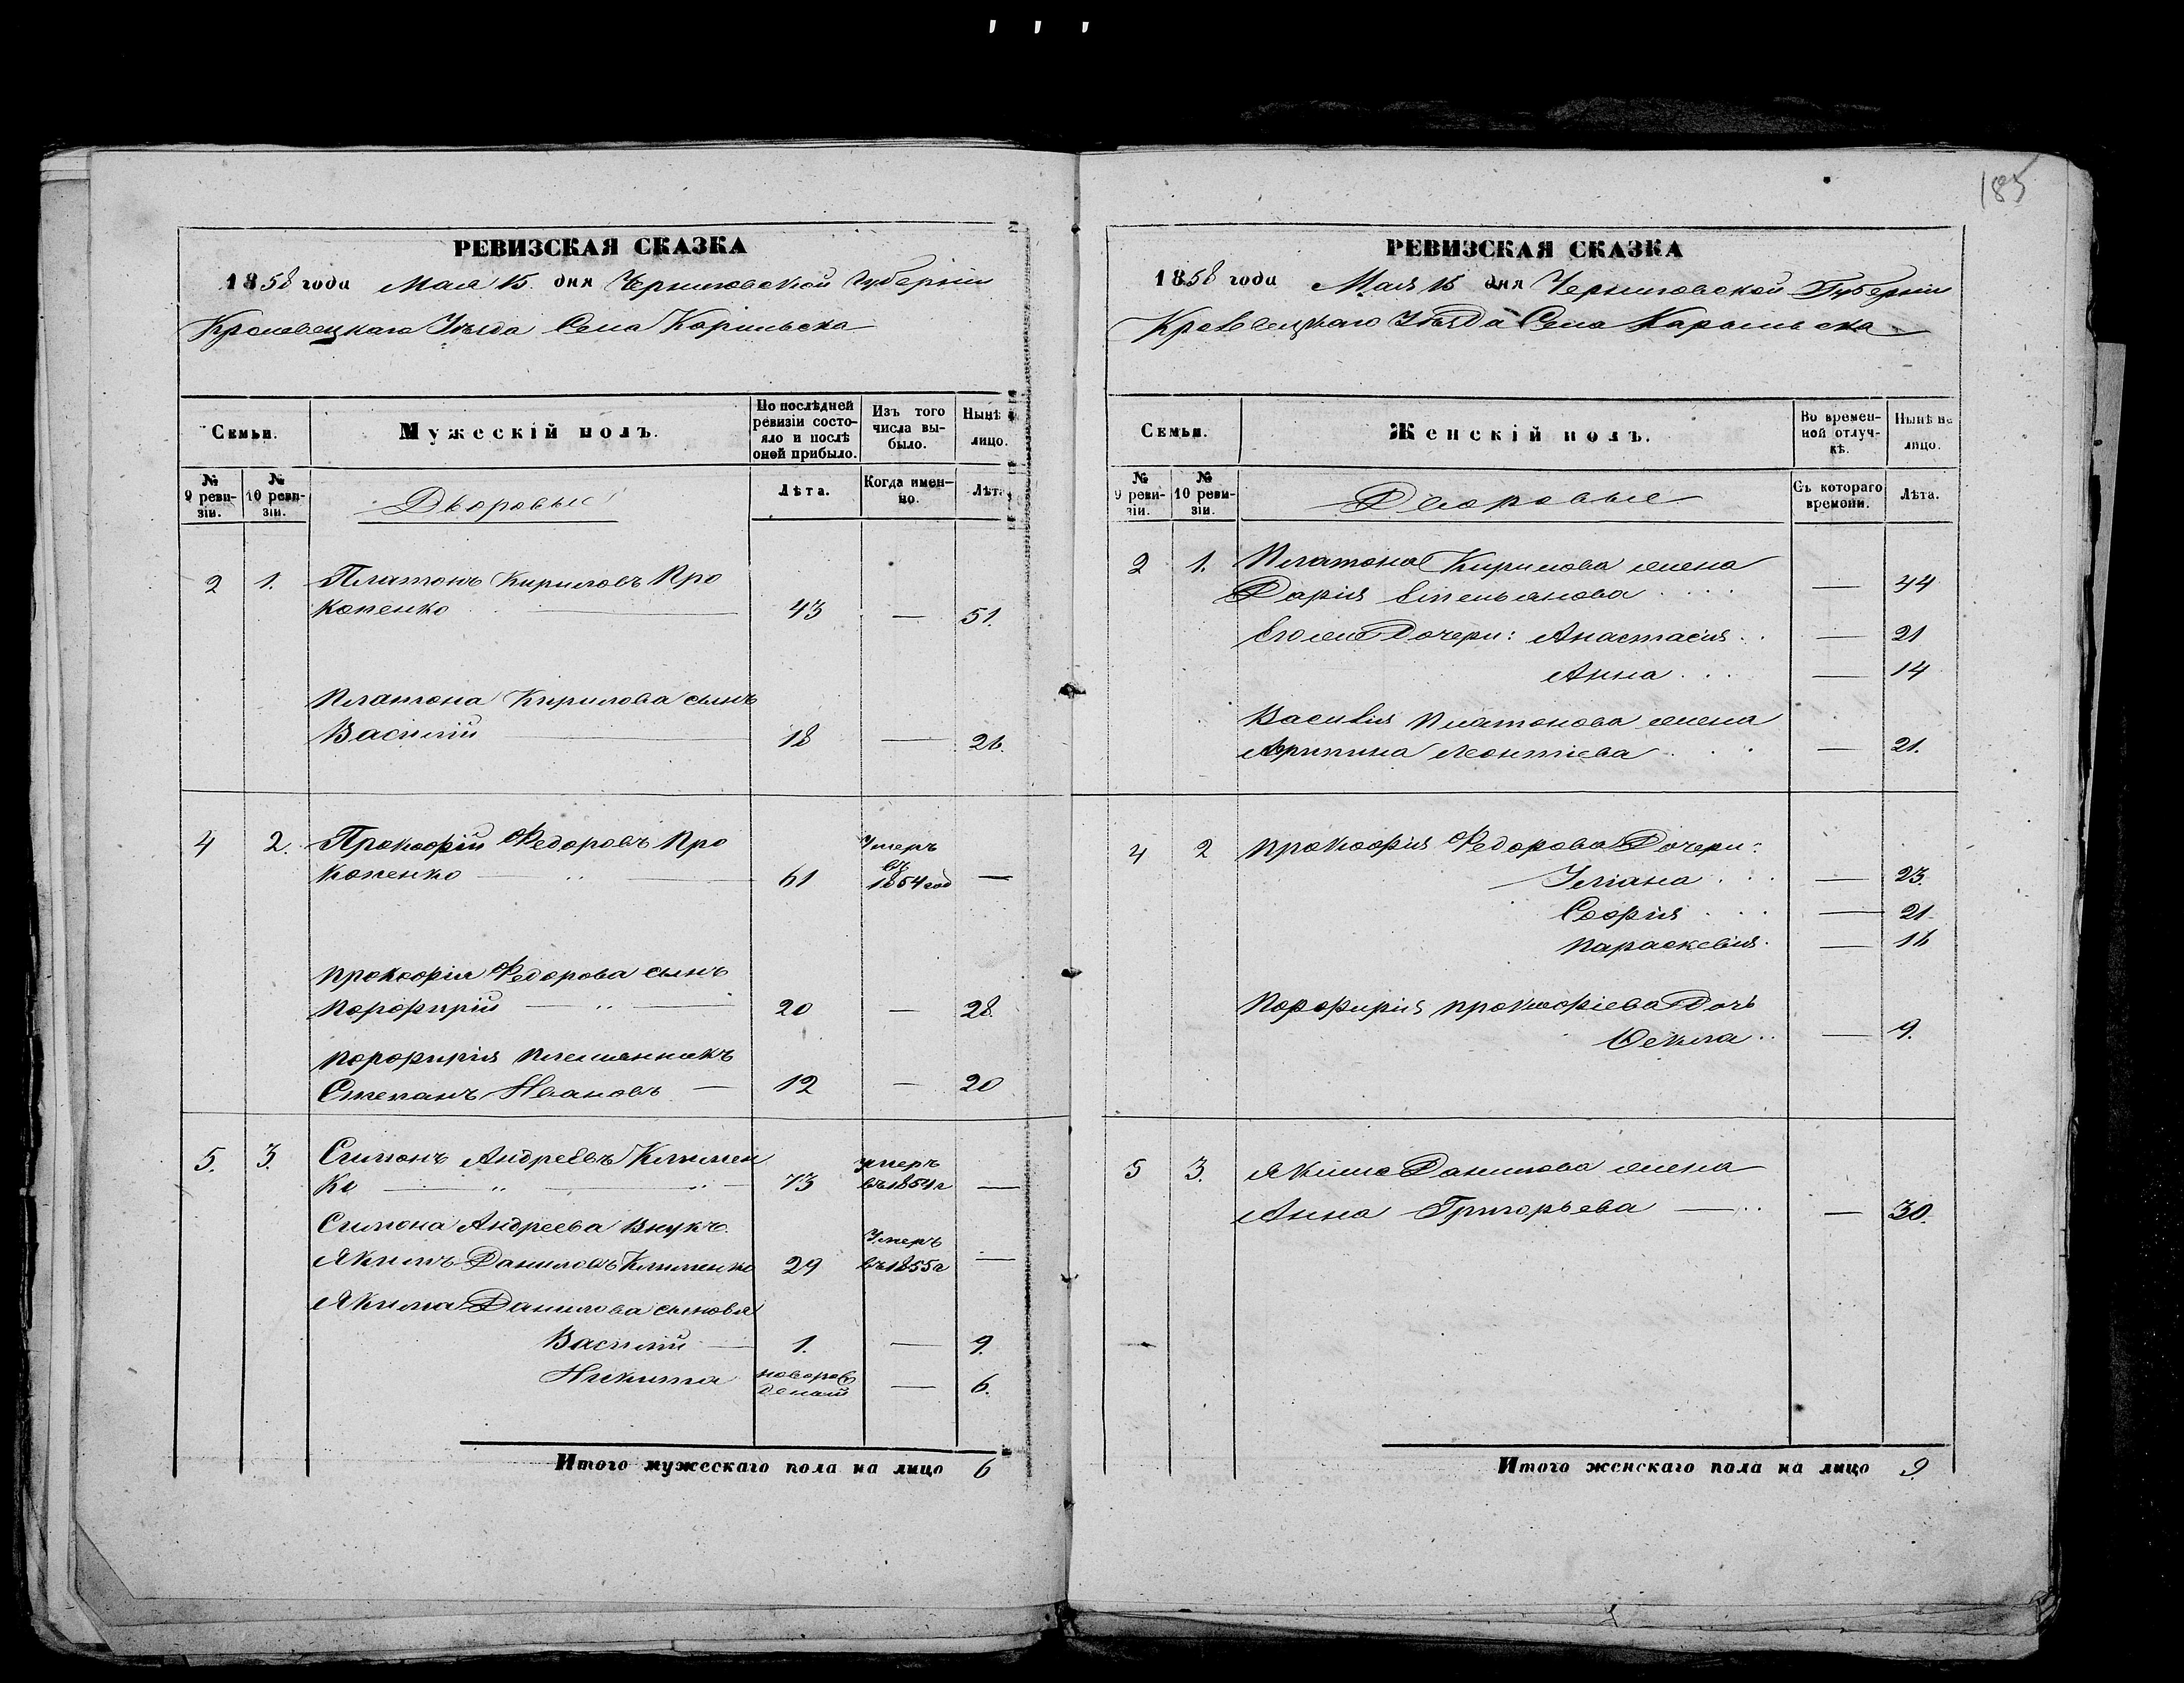 185
РЕВИЗСКАЯ СКАЗКА
1858 года Мая 15 дня Черниговской Губерніи
Кролевецкаго Уѣзда Села Корильска
Семьи.
Мужескій полъ.
По послѣдней ревизіи состояло и послѣ оной прибыло.
Изъ того числа выбыло.
Нынѣ
лицо.
№ 9 ревизіи.
№ 10 ревизіи.
Дворовые
Лѣта.
Когда именно.
Лѣт
2 1. Платонъ Кириловъ Про
копенко 43 — 51.
Платона Кирилова сынъ
Василій 18 — 26.
4 2. Прокофій Федоровъ Про
копенко 61 Умеръ въ 1854 год —
Прокофія Федорова сынъ
Порфирій 20 — 28.
Порфирія племянникъ
Степанъ Ивановъ — 12 — 20
5. 3. Симонъ Андреевъ Климен
ко 73 умеръ въ 1854 г —
Симона Андреева внукъ
Якимъ Даниловъ Клименко 29 Умеръ въ 1855 г —
Якима Данилова сыновья
Василій 1. — 9.
Никита новорожденный — 6.
Итого мужескаго пола на лицо 6
РЕВИЗСКАЯ СКАЗКА
1858 года Мая 15 дня Черниговской Губерніи
Кролевецкаго Уѣзда Села
Семьи.
Женскій полъ.
Во временной отлучкѣ.
Нынѣ на лицо.
№ 9 ревизіи.
№ 10 ревизіи.
Дворовые
Съ котораго времени.
Лѣта.
2 1. Платона Кирилова жена
Дарія Емельянова — 44
Его же Дочери: Анастасія — 21
Анна — 14
Василія Платонова жена
Агрипина Леонтіева — 21.
4 2 Прокофія Федорова Дочери:
Уліана — 23.
Софія — 21.
Параскевія — 16
Порфирія Прокофіева Дочь
Фекла — 9.
5 3. Якима Данилова жена
Анна Григорьева — 30.
Итого женскаго пола на лицо 9.